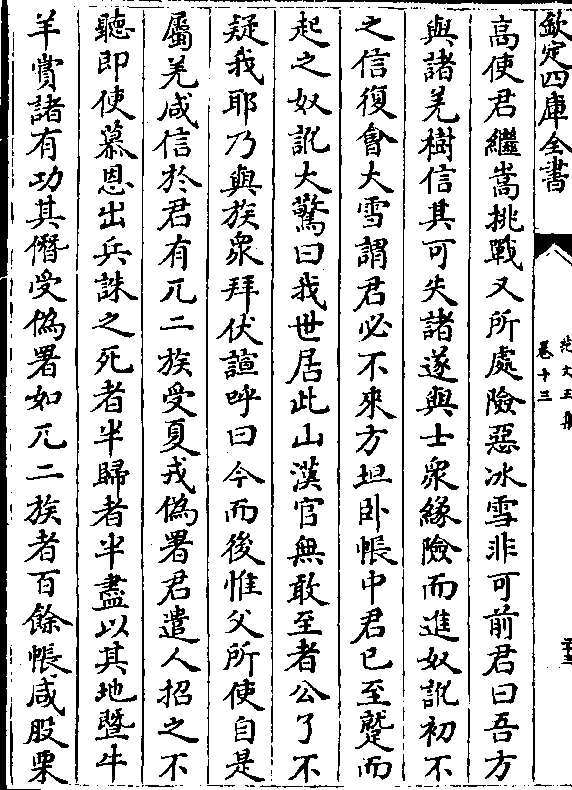 欽定四庫全書
卷十三
高使君繼嵩挑戰又所處險惡冰雪非可前君曰吾方
與諸羌樹信其可失諸遂與士衆緣險而進奴訛初不
之信復會大雪謂君必不來方坦卧帳中君已至蹙而
起之奴訛大驚曰我世居此山漢官無敢至者公了不
疑我耶乃與族衆拜伏諠呼曰今而後惟父所使自是
屬羌咸信於君有兀二族受夏戎偽署君遣人招之不
聽即使慕恩出兵誅之死者半歸者半盡以其地暨牛
羊賞諸有功其僭受偽署如兀二族者百餘帳咸股栗